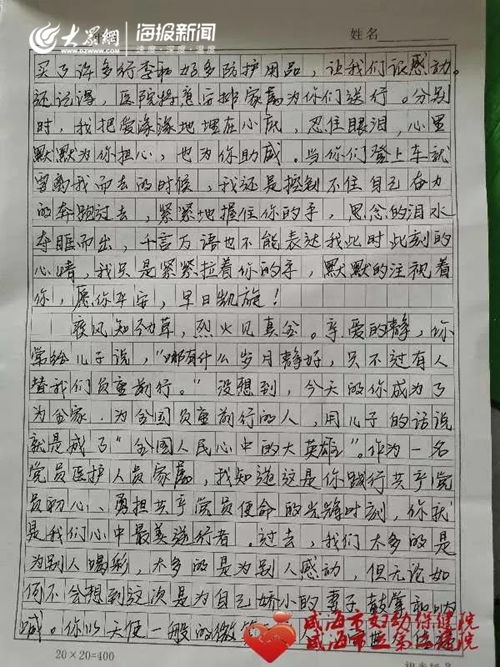 大众网 海报新闻
速度·深度·温度
姓名
买了许多行李和好多防护用品，让我们很感动。
还记得，医院特意安排家属为你们送行。分别
时，我把爱深深地埋在心底，忍住眼泪，心里
默默为你担心，也为你助威。当你们登上车就
要离我而去的时候，我还是控制不住自己奋力
的奔跑过去，紧紧地握住你的手，思念的泪水
夺眶而出，千言万语也不能表达我此时此刻的
心情，我只是紧紧拉着你的手，默默的注视着
你，愿你平安，早日凯旋！
疾风知劲草，烈火见真金。亲爱的静，你
常给儿子说，“哪有什么岁月静好，只不过有人
替我们负重前行。”没想到，今天的你成为了
为全家、为全国负重前行的人，用儿子的话说
就是成了“全国人民心中的大英雄”。作为一名
党员医护人员家属，我知道这是你践行共产党
员初心、勇担共产党员使命的光辉时刻，你就
是我们心中最美逆行者。过去，我们太多的是
为别人喝彩，太多的是为别人感动，但无论如
何不会想到这次是为自己娇小的妻子鼓掌和呐
喊。你以天使一般的微笑
20×20=400
威海市妇幼保健院
威海市